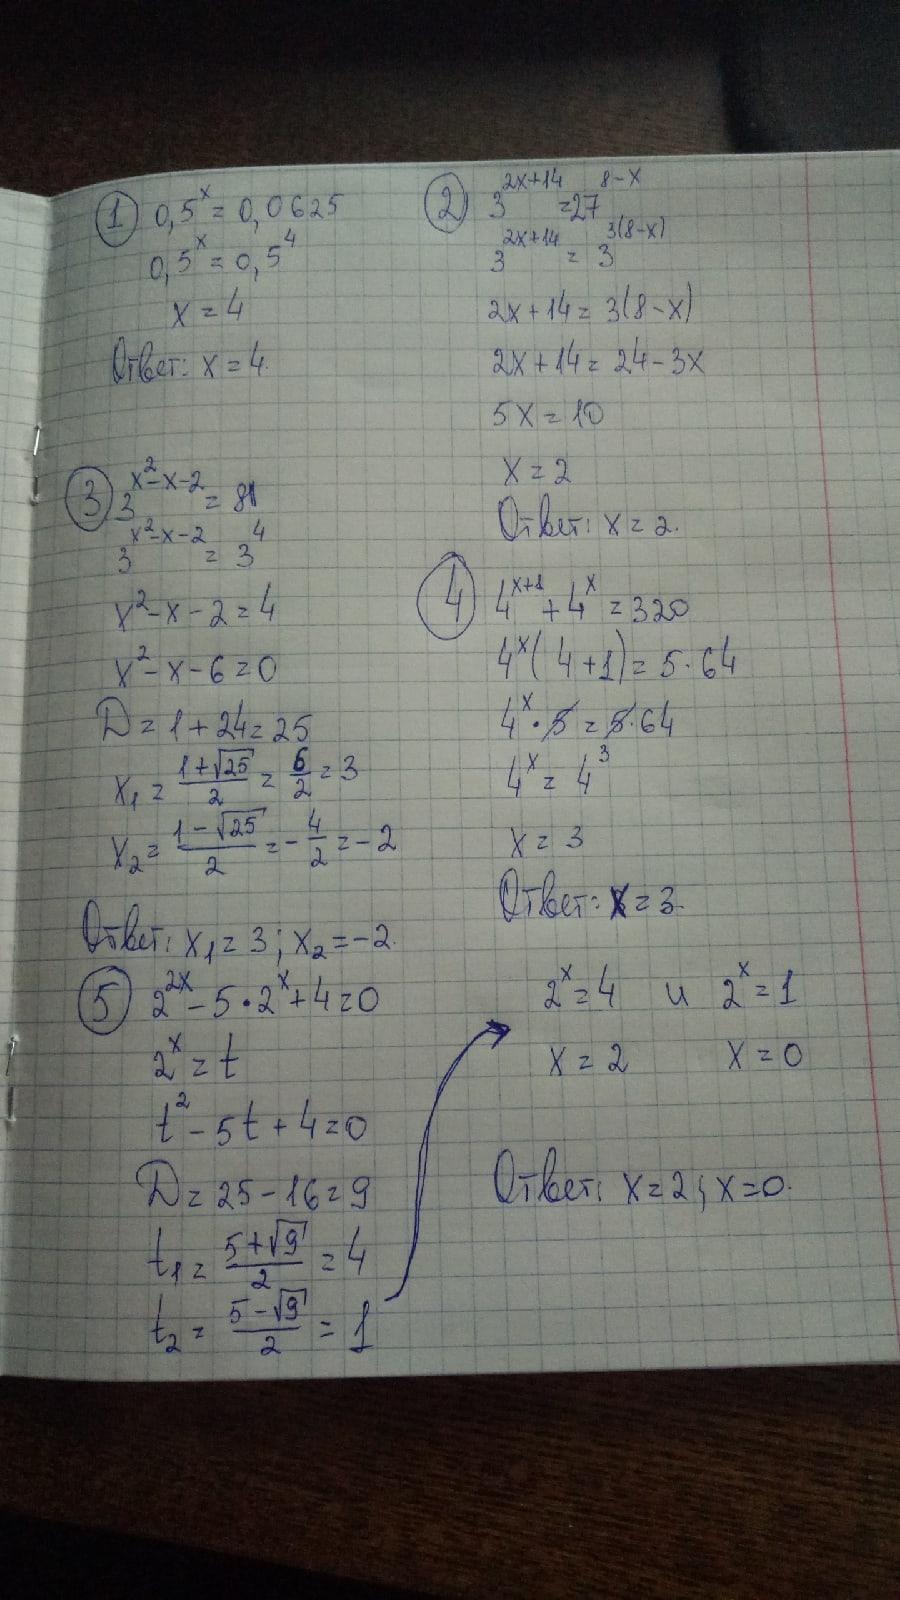 1 0,5^x = 0,0625
0,5^x = 0,5^4
x = 4
Ответ: x = 4.
2 3^(2x+14) = 27^(8-x)
3^(2x+14) = 3^(3(8-x))
2x + 14 = 3(8-x)
2x + 14 = 24 - 3x
5x = 10
x = 2
Ответ: x = 2.
3 3^(x²-x-2) = 81
3^(x²-x-2) = 3^4
x² - x - 2 = 4
x² - x - 6 = 0
D = 1 + 24 = 25
x₁ = (1+√25)/2 = 6/2 = 3
x₂ = (1-√25)/2 = -4/2 = -2
Ответ: x₁ = 3; x₂ = -2.
4 4^(x+1) + 4^x = 320
4^x(4+1) = 5·64
4^x · 5 = 5·64
4^x = 4^3
x = 3
Ответ: x = 3.
5 2^(2x) - 5·2^x + 4 = 0
2^x = t
t² - 5t + 4 = 0
D = 25 - 16 = 9
t₁ = (5+√9)/2 = 4
t₂ = (5-√9)/2 = 1
2^x = 4 и 2^x = 1
x = 2 x = 0
Ответ: x = 2; x = 0.